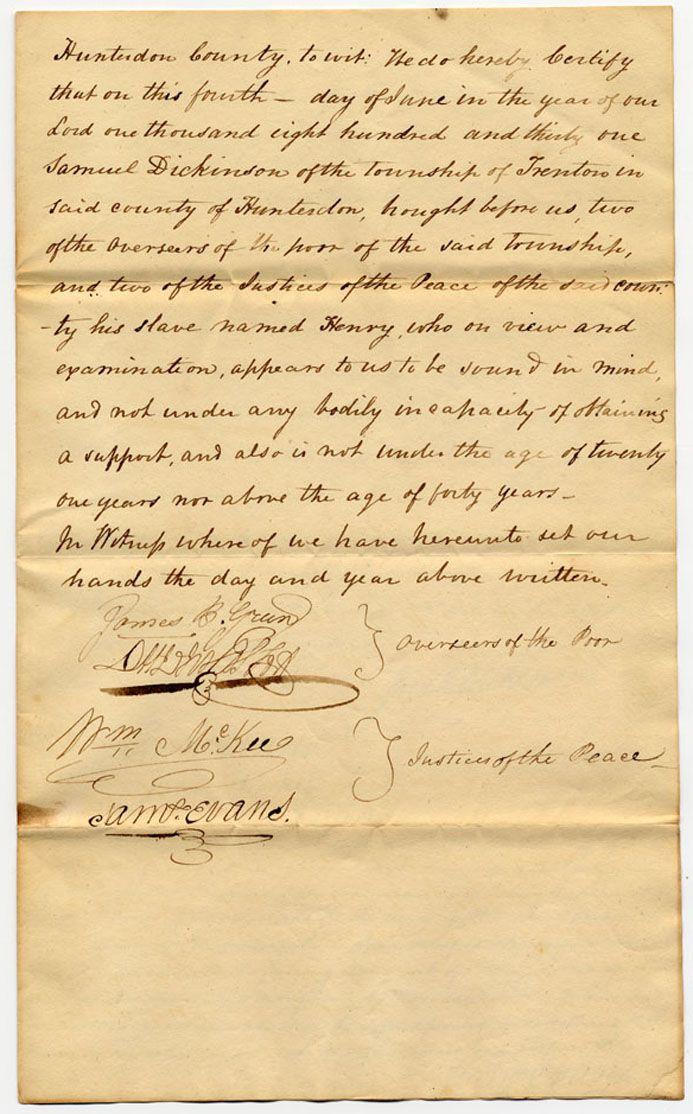 Hunterdon County, to wit: We do hereby Certify
that on this fourth — day of June in the year of our
Lord one thousand eight hundred and thirty one
Samuel Dickinson of the township of Trenton in
said county of Hunterdon, brought before us, two
of the Overseers of the poor of the said township,
and two of the Justices of the Peace of the said coun-
-ty his slave named Henry, who on view and
examination, appears to us to be sound in mind,
and not under any bodily incapacity of obtaining
a support, and also is not under the age of twenty
one years nor above the age of forty years —
In Witness where of we have hereunto set our
hands the day and year above written.
James B. Green
Overseers of the Poor
Wm McKee
Justices of the Peace —
Saml. Evans.